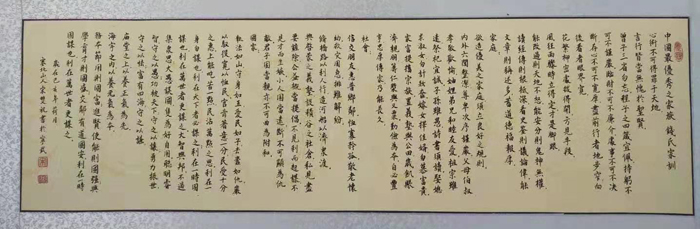 中國最優秀之家族 錢氏家訓
心術不可得罪于天地
言行皆當無愧於聖賢
曾子之三省勿忘程子之四箴宜佩持躬不
可不謹嚴臨財不可不廉介處事不可不決
斷存心不可不寬厚盡前行者地步窄向
後看者眼界寬
花繁柳密處撥得開方見手段
風狂雨驟時立得定才是腳跟
能改過則天地不怒能安分則鬼神無權
讀經傳則根柢深看史鑒則議論偉能
文章則稱述多蓄道德福報厚
家庭
欲造優美之家庭須立良好之規則
內外六閭整潔尊卑次序謹嚴父母伯叔
孝敬歡愉妯娌弟兄和睦友愛祖宗雖
遠祭祀宜誠子孫雖愚詩書須讀娶媳
求淑女勿計妝奩嫁女擇佳婿勿慕富貴
家富提攜宗族置義塾與公田歲飢賑
濟親朋籌仁漿與義粟勤儉為本自必豐
亨忠厚傳家乃能長久
社會
信交朋友惠普鄉鄰恤寡矜孤敬老懷
幼救災周急排難解紛
修橋路以利人行造河船以濟眾渡
興啓蒙之義塾設積穀之社倉私見盡
要鏟除公益概當提倡不見利而起謀不
見才而生嫉小人固當遠斷不可顯為仇
敵君子固當親亦不可曲為附和
國家
執法如山守身如玉愛民如子去蠹如仇嚴
以馭役寬以恤民官肯著意一分民受十分
之惠上能吃苦一點民沾萬點之恩利在一
身勿謀也利在天下者必謀之利在一時固
謀也利在萬世者更謀之大智興邦不過
集眾思大愚誤國只為好自用聰明睿
智守之以愚功被天下守之以讓勇力振世
守之以怯富有四海守之以謙
廟堂之上以養正氣為先
海宇之內以養元氣為本
務本節用則國富進賢使能則國強興
學育才則國盛交鄰有道國安利在一時
固謀也利在萬世者更謀之